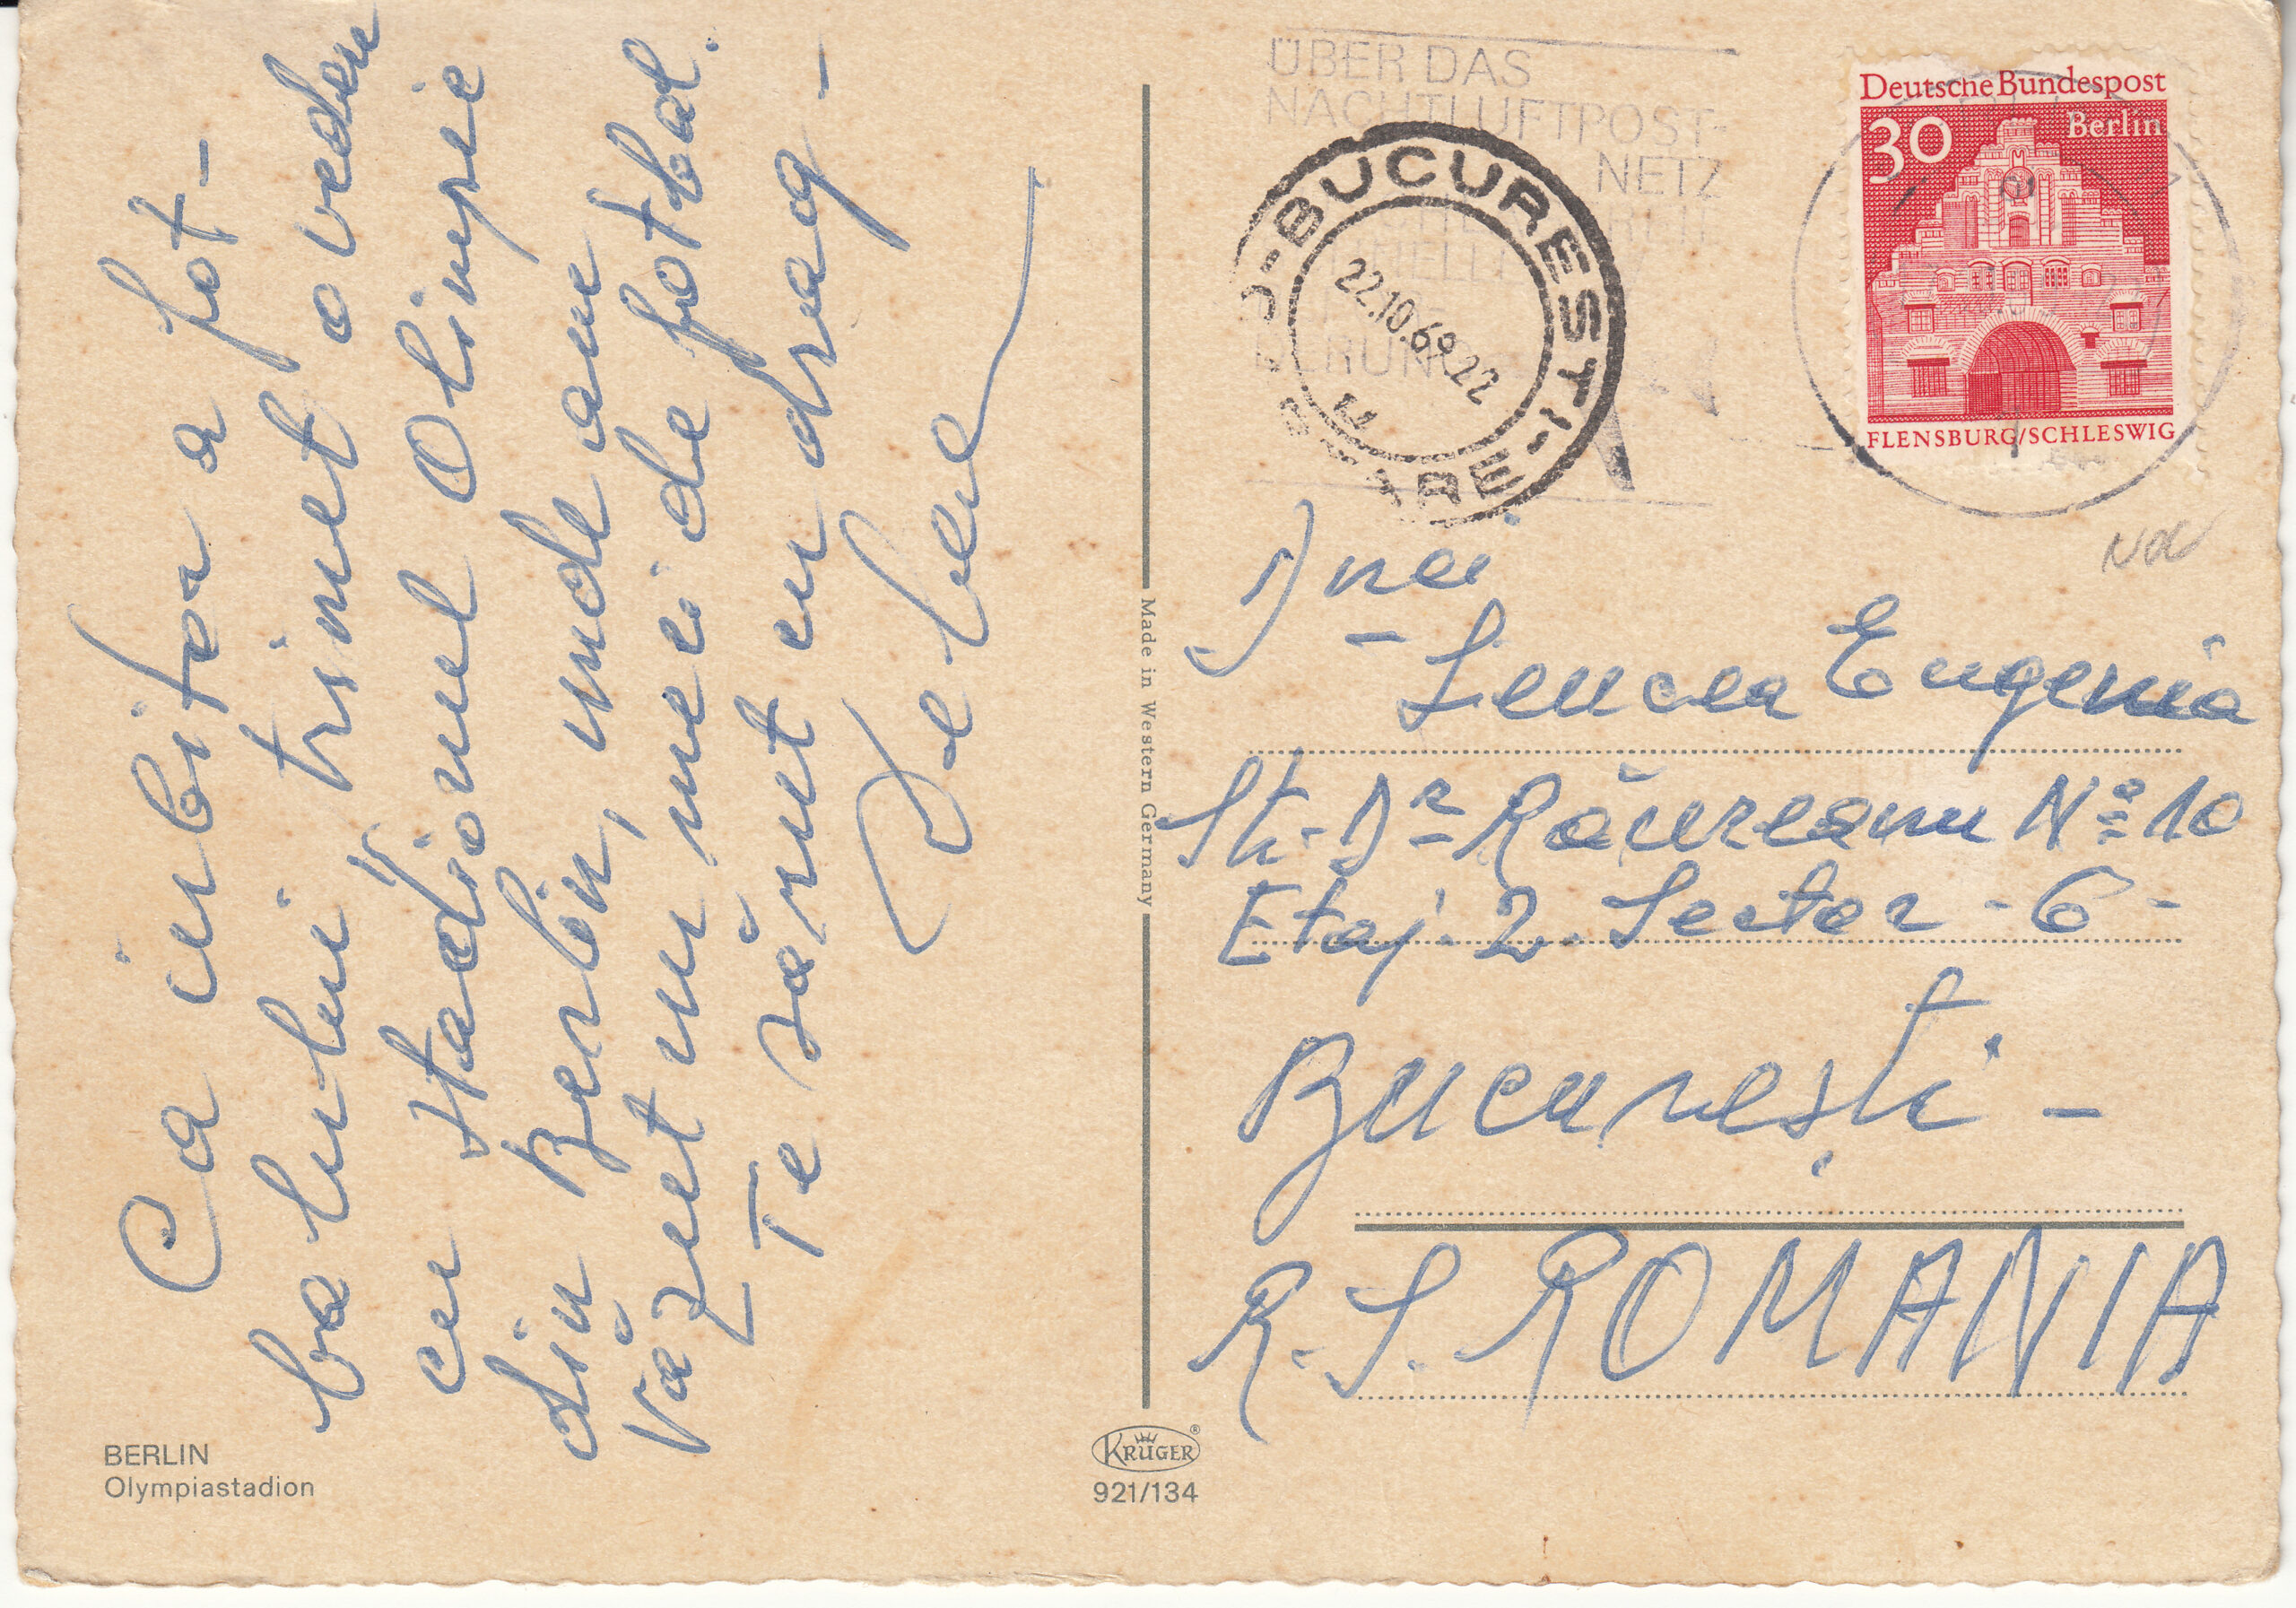 Ca iubitor a fot-
balului trimet o vedere
cu Stadionul Olimpic
din Berlin, unde am
văzut un meci de fotbal.
Te sărut cu drag -
BERLIN
Olympiastadion
Made in Western Germany
KRÜGER
921/134
ÜBER DAS
NACHTLUFTPOST-
NETZ
BERLIN
BUCURESTI
22.10.69.22
Deutsche Bundespost
30 Berlin
FLENSBURG/SCHLESWIG
Dnei
Leucea Eugenia
Str. Dr Răureanu No 10
Etaj. 2. Sector - 6 -
București -
R. S. ROMANIA